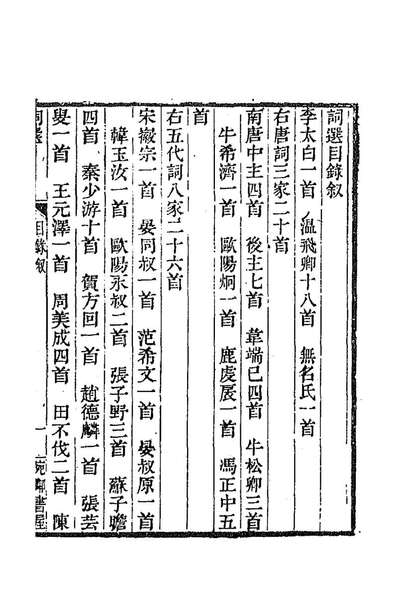 詞選目錄敘
李太白一首　溫飛卿十八首　無名氏一首
右唐詞三家二十首
南唐中主四首　後主七首　韋端已四首　牛松卿三首
牛希濟一首　歐陽炯一首　鹿虔扆一首　馮正中五
首
右五代詞八家二十六首
宋徽宗一首　晏同叔一首　范希文一首　晏叔原一首
韓玉汝一首　歐陽永叔二首　張子野三首　蘇子瞻
四首　秦少游十首　賀方回一首　趙德麟一首　張芸
叟一首　王元澤一首　周美成四首　田不伐二首　陳
詞選　目錄敘　一　宛鄰書屋